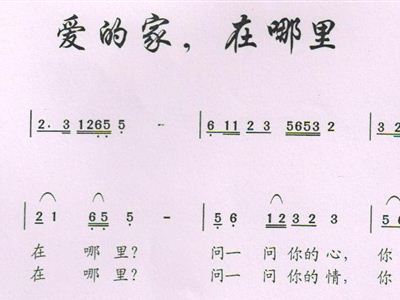 爱的家，在哪里
2. 3 1265 5 - 6 11 2 3 5653 2 3 2
2 1 6 5 5 - 5 6 1 2 3 2 3 5 6
在 哪 里？ 问一 问 你的 心， 你
在 哪 里？ 问一 问 你的 情， 你